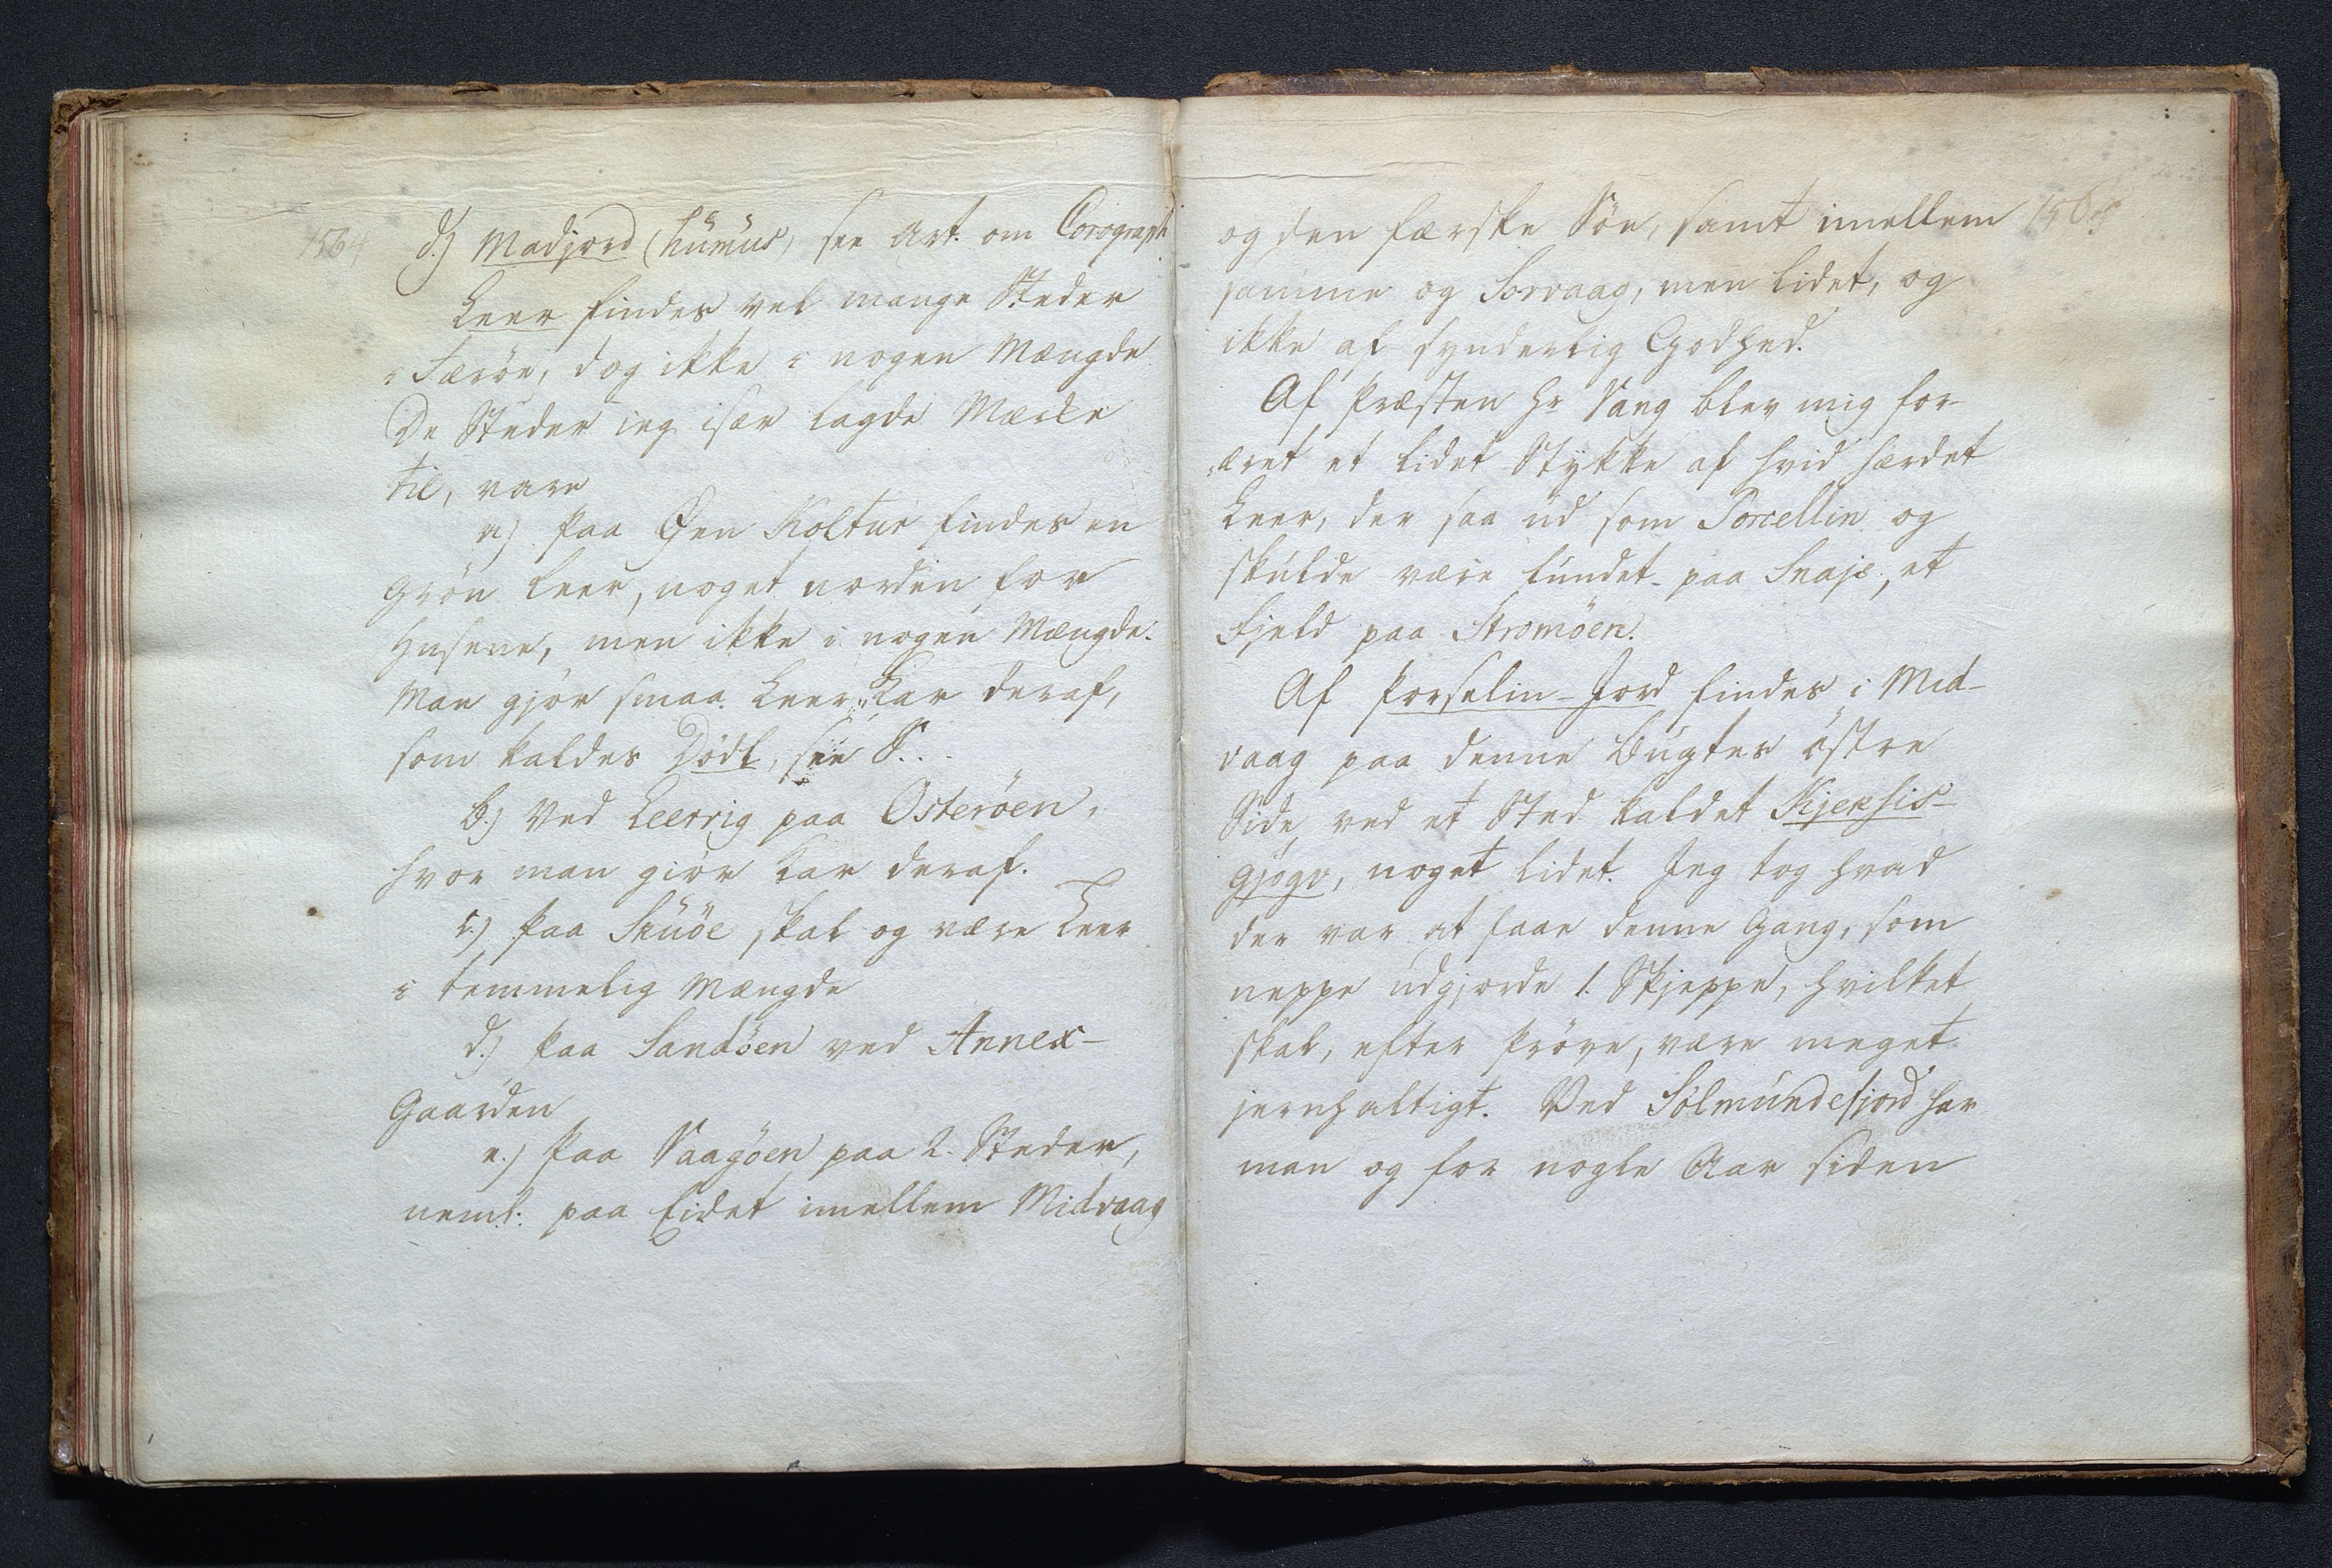 1564
d.) Madjord (humus) see Art. om Corograph.
Leer findes vel mange Steder
i Færöe, dog ikke i nogen Mængde
De Steder ieg især lagde Mærke
til, vare
a) Paa Øen Koltur findes en
Grön Leer, noget norden for
Husene, men ikke i nogen Mængde.
Man gjör smaa Leer-Kar deraf,
som kaldes Dödl, see S...
b.) Ved Leervig paa Osteröen,
hvor man giör Kar deraf.
c.) Paa Skuöe skal og være Leer
i temmelig Mængde
d.) Paa Sandöen ved Annex-
Gaarden
e.) Paa Vaagöen paa 2. Steder,
neml: paa Eidet imellem Midvaag
og den færske Söe, samt imellem
samme og Sorvaag, men lidet, og
ikke af synderlig Godhed.
Af Præsten Hr Vang blev mig for-
æret et lidet Stykke af hvid hærdet
Leer, der saa ud som Porcellin og
skulde være fundet paa Snaje, et
Fjeld paa Stromöen.
Af Porselin-Jord findes i Mid-
vaag paa denne Bugtes östre
Side ved et Sted kaldet Kjeksis-
gjögv, noget lidet. Jeg tog hvad
der var at faae denne Gang, som
neppe udgjorde 1. Skjeppe, hvilket
skal, efter Pröve, være meget
jernhaltigt. Ved Solmundefjord har
man og for nogle Aar siden